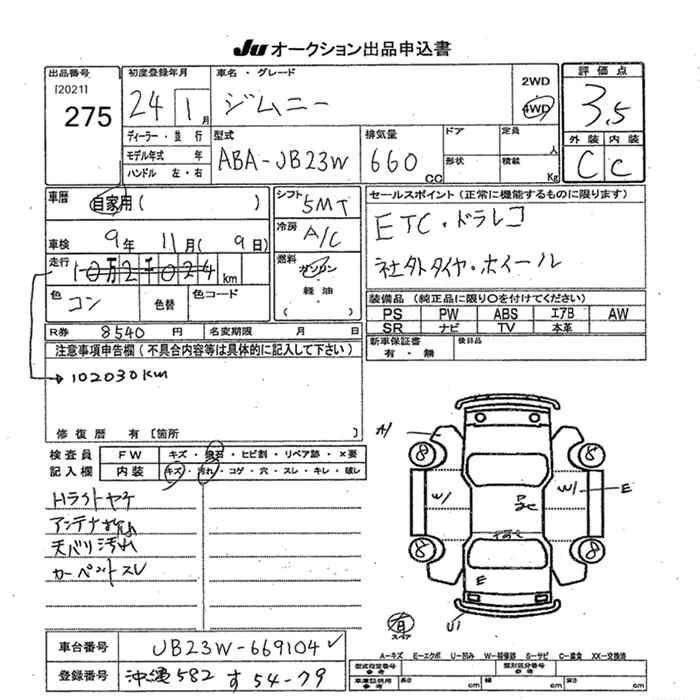 JU オークション出品申込書
出品番号
[2021]
275
初度登録年月
24 1月
車名・グレード
ジムニー
2WD
4WD
評価点
3.5
外装 内装
C C
ディーラー・並行
モデル年式 年
ハンドル 左・右
型式
ABA-JB23W
排気量
660 CC
ドア
形状
定員 人
積載 Kg
車歴
自家用( )
車検 9年 11月( 9日)
走行 10万2千024 km
色 コン
色替
色コード
シフト
5MT
冷房
A/C
燃料
ガソリン
軽油
( )
セールスポイント(正常に機能するものに限ります)
ETC・ドラレコ
社外タイヤ・ホイール
装備品(純正品に限り○を付けてください)
PS PW ABS エアB AW
SR ナビ TV 本革
新車保証書
有・無
後日品
R券 8540 円
名変期限 月 日
注意事項申告欄(不具合内容等は具体的に記入して下さい)
→102030km
修復歴 有 [箇所 ]
検査員
記入欄
FW キズ・飛石・ヒビ割・リペア跡・×要
内装 キズ・汚れ・コゲ・穴・スレ・キレ・破レ
Hライトヤケ
天バリ汚れ
カーペットスレ
A1
8
8
W1
W1
E
8
8
E
U1
有
スペア
A-キズ E-エクボ U-凹み W-補修跡 S-サビ C-腐食 XX-交換済
車台番号 JB23W-669104✓
登録番号 沖縄 582 す 54-79
型式指定番号
参考
類別区分番号
参考
車庫証明用
参考
長さ cm
幅 cm
高さ cm